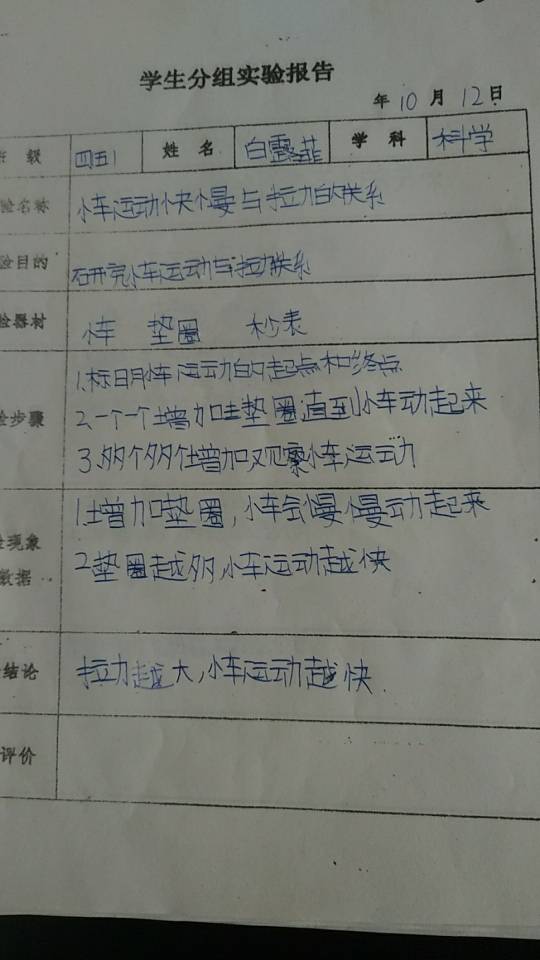 学生分组实验报告
年10月12日
级 四五1 姓名 白露菲 学科 科学
验名称 小车运动快慢与拉力的关系
验目的 研究小车运动与拉力关系
验器材 小车 垫圈 秒表
1.标明小车运动的起点和终点
验步骤 2.一个一个增加垫圈直到小车动起来
3.多个多个增加观察小车运动
1.增加垫圈,小车会慢慢动起来
现象
数据 2垫圈越多,小车运动越快
结论 拉力越大,小车运动越快
评价